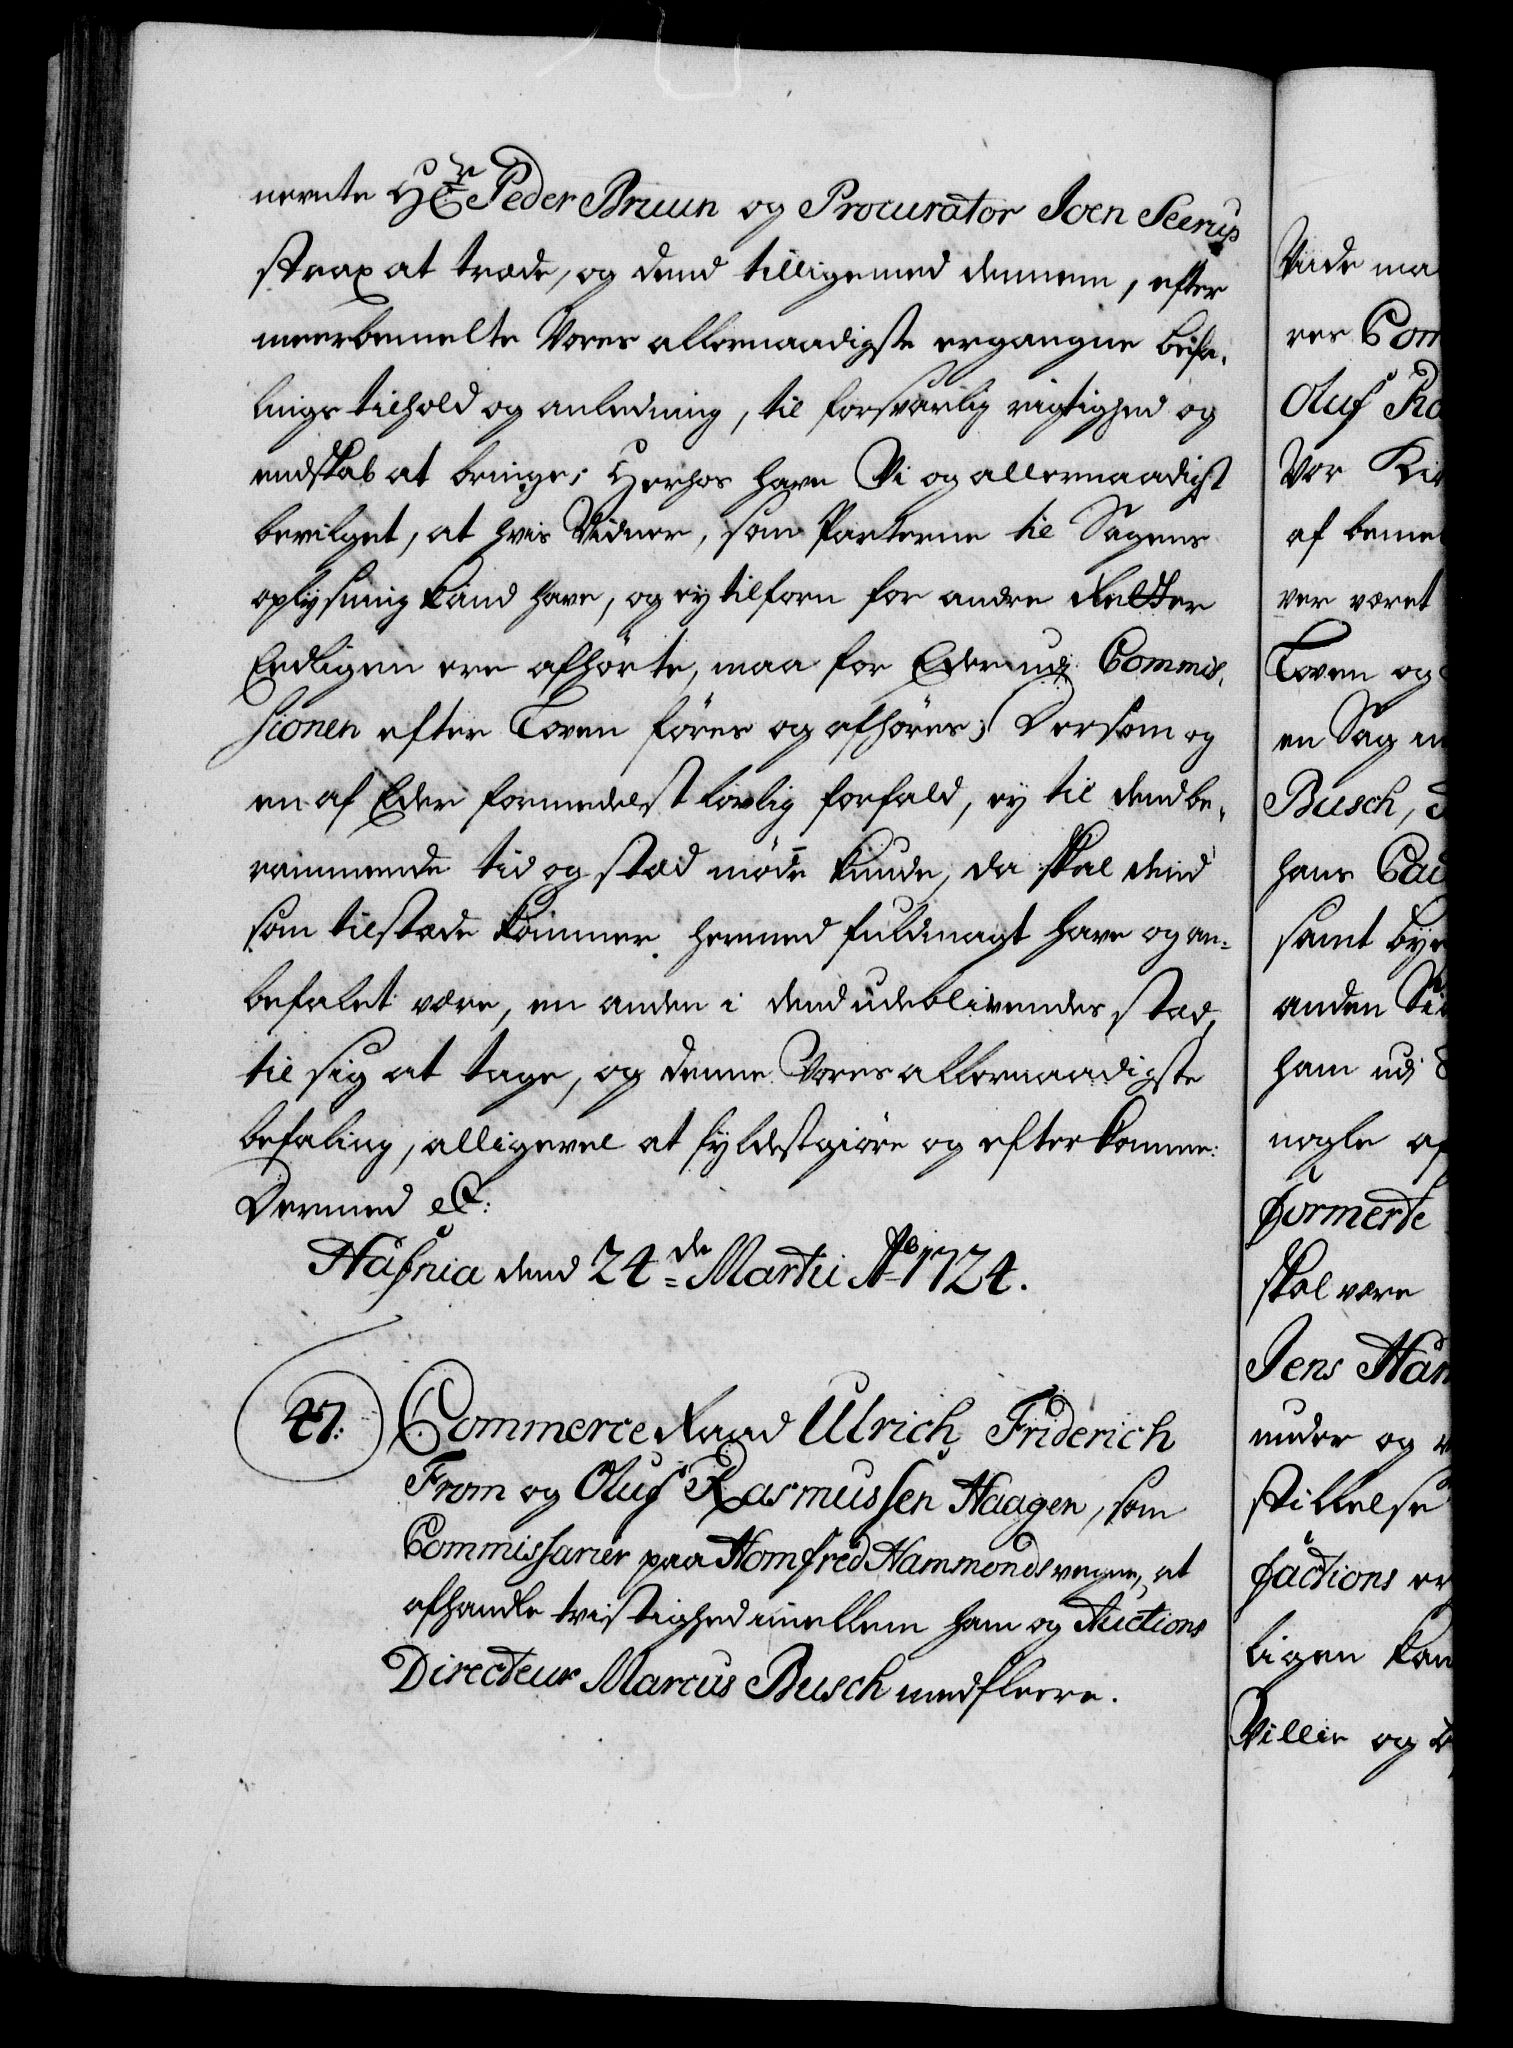 nevnte Hr: Peder Bruun og Procurator Joen Seerup
strax at træde, og dend tilligemed dennem, efter
meerbemelte Vores allernaadigste ergangne befa-
lings tilhold og anledning, til forsvarlig rigtighed og
endskab at bringe; Herhos have Vi og allernaadigst
bevilget, at hvis Vidner, som Parterne til Sagens
oplysning kand have, og ey tilforn for andre Retter
Eedligen ere afhørte, maa for Eder udj Commis-
sionen efter Loven føres og afhøres; Dersom og
en af Eder formedelst lovlig forfald, ey til dend be-
rammende tid og stæd møde kunde, da skal dend
som tilstæde kommer hermed fuldmagt have og an-
befalet være, en anden i dend udeblivendes stæd,
til sig at tage, og denne Vores allernaadigste
befaling, alligevel at fyldestgiøre og efterkomme:
Dermed etc:
Hafnia dend 24de Martii Ao 1724.
47: Commerce Raad Ulrich Friderich
From og Oluf Rasmussen Haagen, som
Commissarier paa Homfred Hammonds vegne, at
afhandle tvistighed imellem ham og Auctions
Directeur Marcus Busch med fleere.
Viide ma
res Com
Oluf Ra
Vor Ki
af beme
ver været
Loven og
en Sag
Busch,
hans
samt bye
anden Si
ham udj
nogle af
formerte
skal være
Jens Ham
under og
stillelse
factions er
ligen kan
Villie og